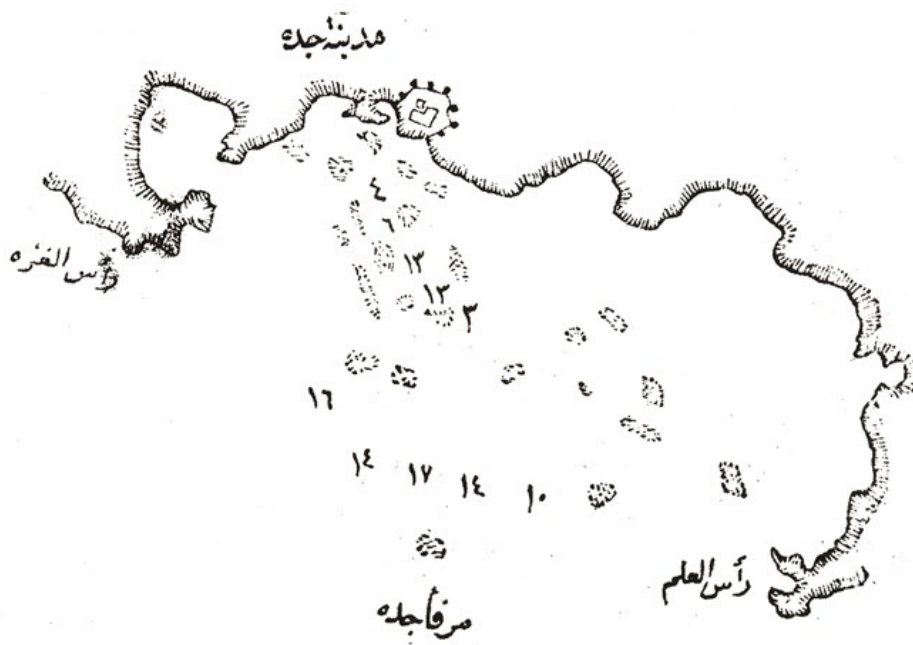 مدينة جده
٤
٦
١٣
١٣
٣
١٦
١٤
١٧
١٤
١٠
رأس العلم
مرفأ جده